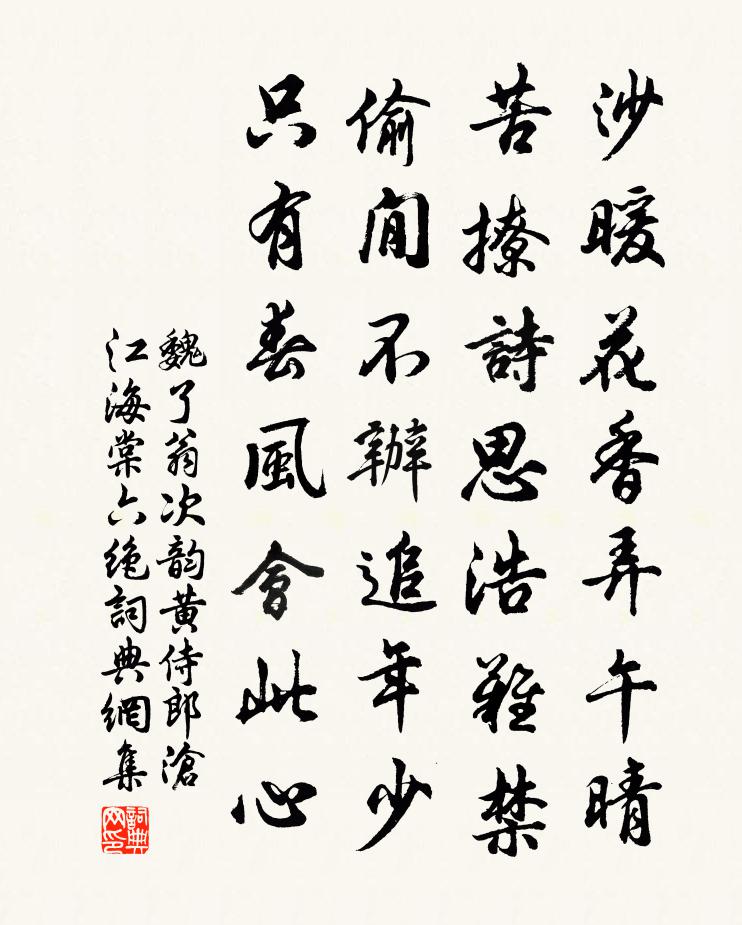 沙暖花香弄午晴
苦撩詩思浩難禁
偷閒不辦追年少
只有春風會此心
魏了翁次韵黄侍郎滄
江海棠六絶詞典網集
詞典
网印